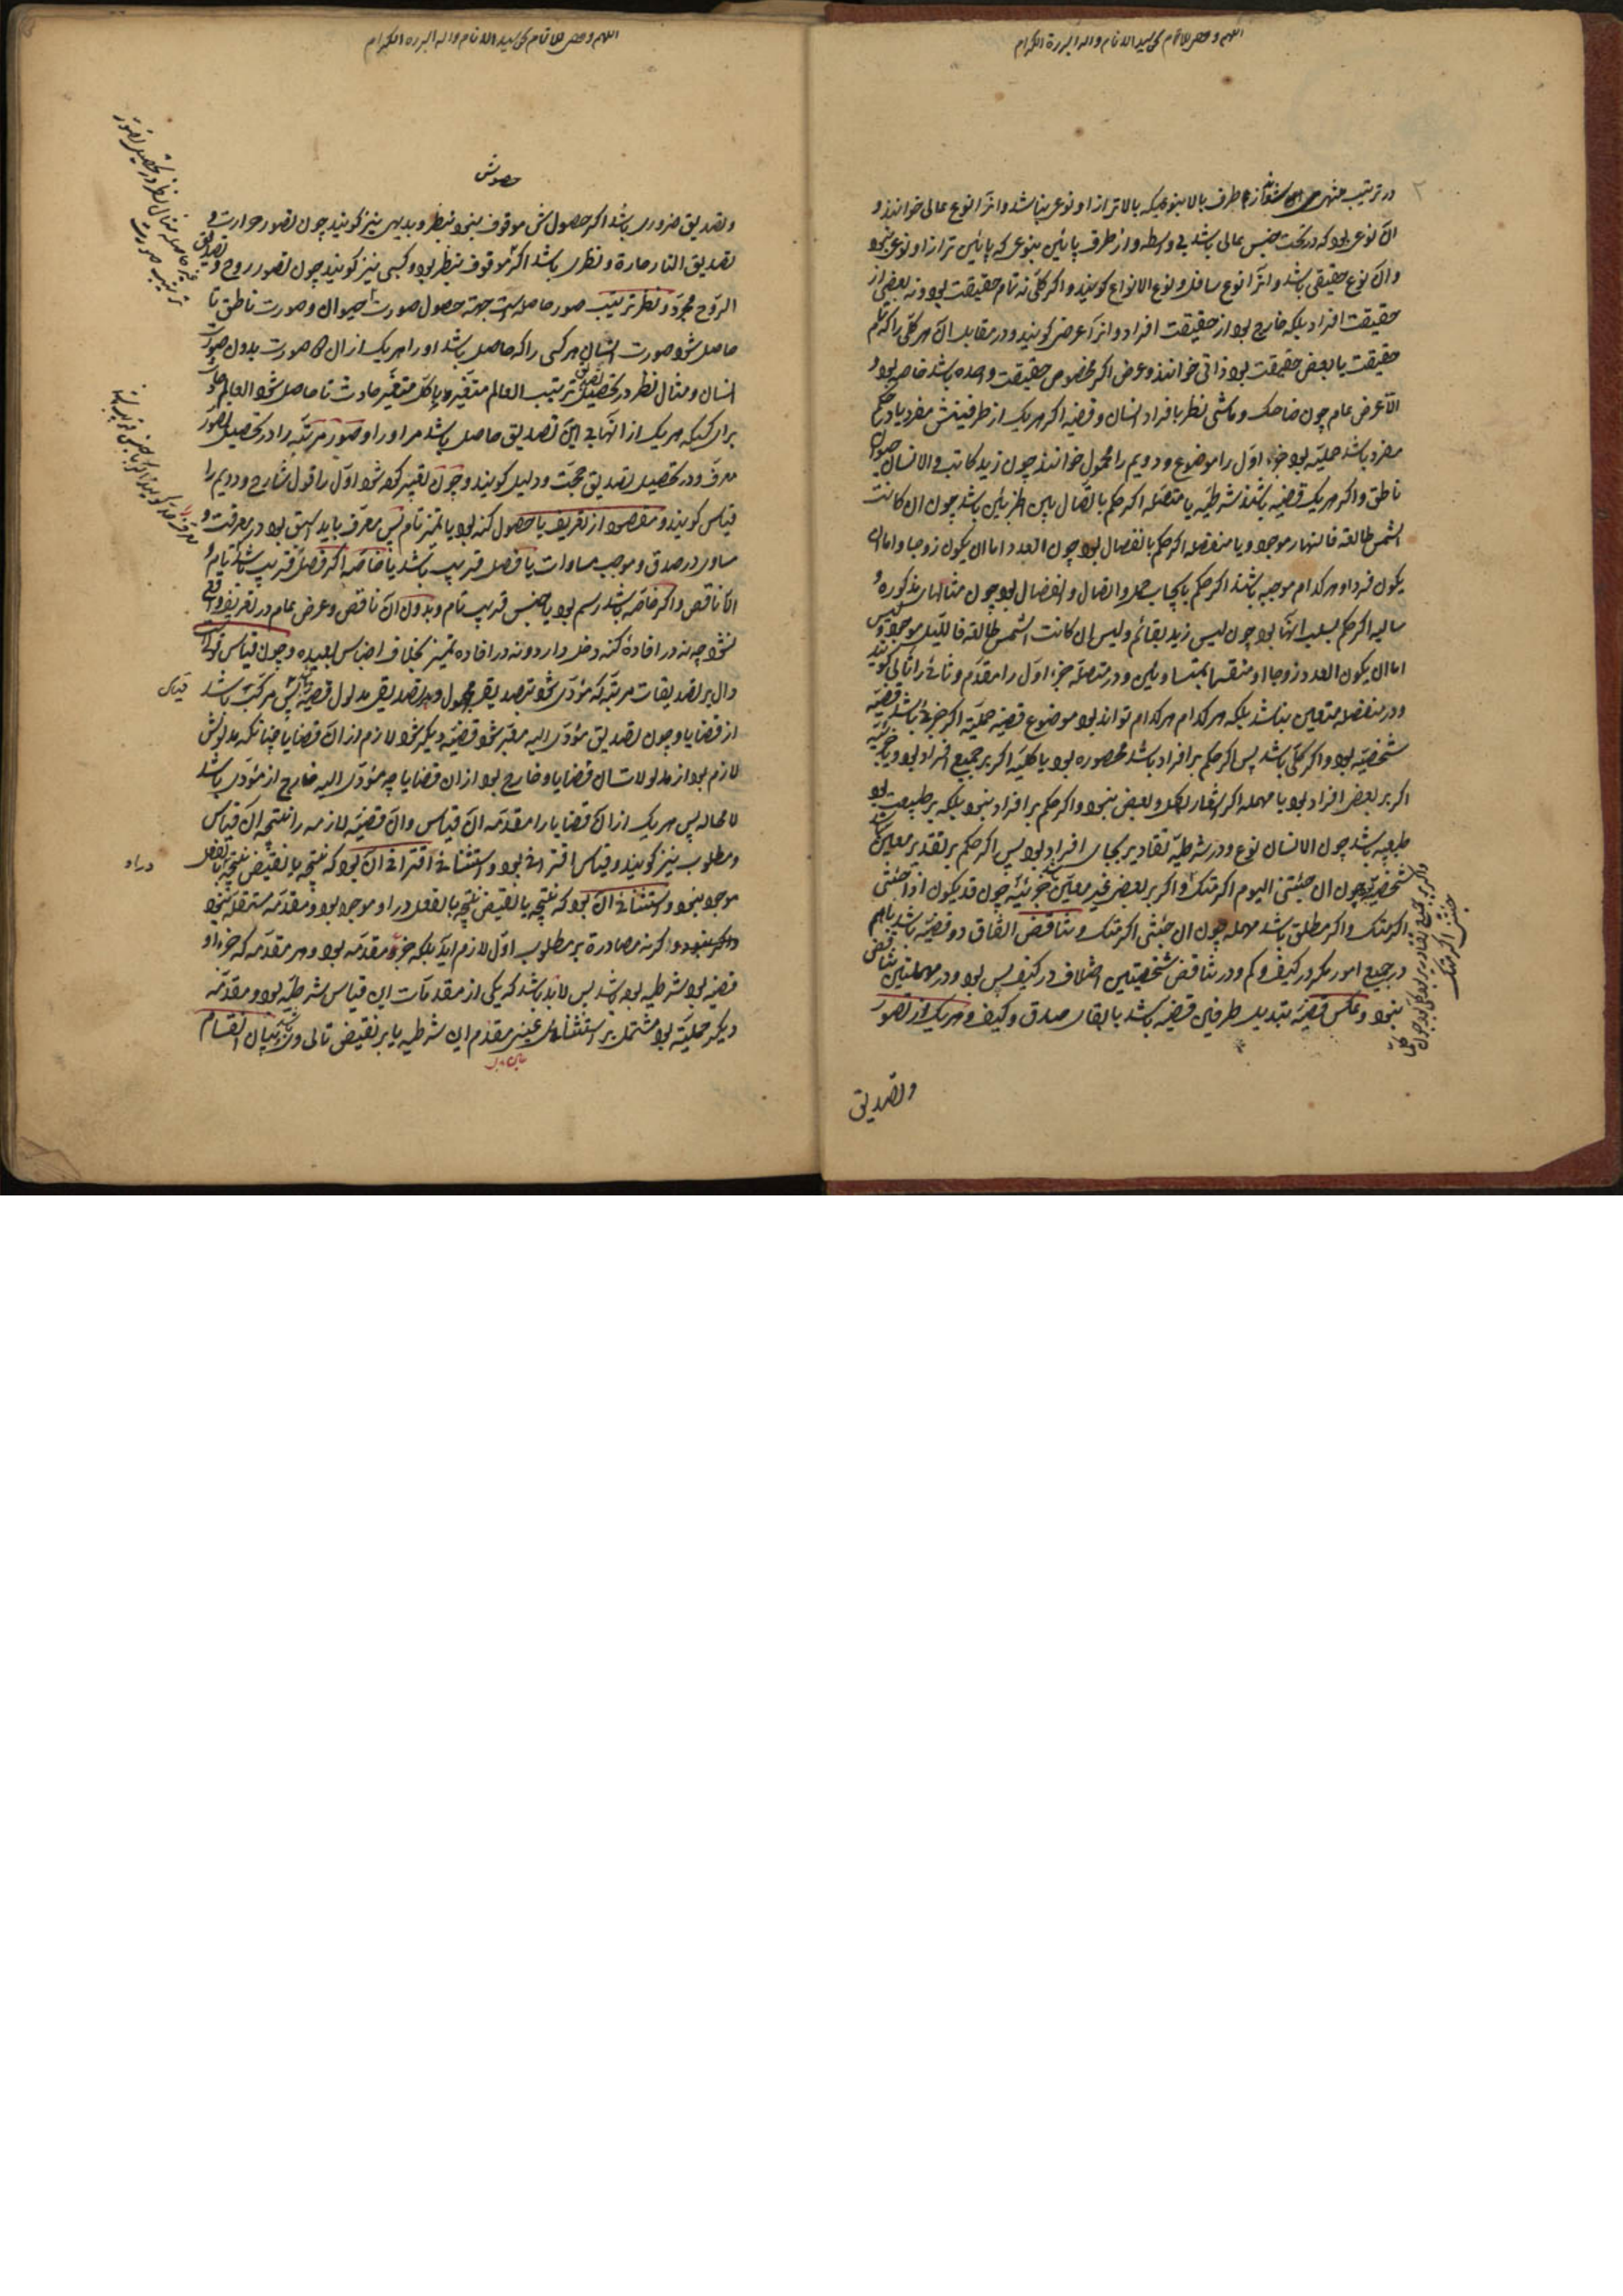 در ترتیب منتهی شوند از طرف بالا بنوعیکه بالاتر از او نوعی نباشد و انرا نوع عالی خوانند و
آن نوعی بود که در تحت جنس عالی باشد بی واسطه و از طرف پائین بنوعی که پائین تر از او نوعی نبود
و آن نوع حقیقی باشد و انرا نوع سافل و نوع الانواع کویند و اکر کلی نه تمام حقیقت بود و نه بعضی از
حقیقت افراد بلکه خارج بود از حقیقت افراد و انرا عرضی کویند و در مقابله آن هر کلی را که تمام
حقیقت یا بعض حقیقت بود ذاتی خوانند و عرض اکر مخصوص حقیقت واحده باشد خاصه بود و
الا عرض عام چون ضاحک و ماشی نظر بافراد انسان و قضیه اکر هر یک از طرفینش مفرد یا در حکم
مفرد باشد حملیه بود جزء اول را موضوع و دویم را محمول خوانند چون زید کاتب و الانسان حیوان
ناطق و اکر هر یک قضیه باشند شرطیه یا متصله اکر حکم باتصال بین الطرفین باشد چون ان کانت
الشمس طالعة فالنهار موجود و یا منفصله اکر حکم بانفصال بود چون العدد اما ان یکون زوجا و اما ان
یکون فردا و هر کدام موجبه باشند اکر حکم بایجاب حمل و اتصال و انفصال بود چون مثالهای مذکوره و
سالبه اکر حکم بسلب انها بود چون لیس زید بقائم و لیس ان کانت الشمس طالعة فاللیل موجود و لیس
اما ان یکون العدد زوجا او منقسما بمتساویین و در متصله جزء اول را مقدم و ثانی را تالی کویند
و در منفصله متعین نباشد بلکه هر کدام هر کدام تواند بود و موضوع قضیه حملیه اکر جزئی باشد قضیه
شخصیه بود و اکر کلی باشد پس اکر حکم بر افراد باشد محصوره بود یا کلیه اکر بر جمیع افراد بود و یا جزئیه
اکر بر بعض افراد بود یا مهمله اکر اشعار بکل و بعض نبود و اکر حکم بر افراد نبود بلکه بر طبیعت بود
طبیعیه باشد چون الانسان نوع و در شرطیه تقادیر بجای افراد بود پس اکر حکم بر تقدیر معین باشد
شخصیه بود چون ان جئتنی الیوم اکرمتک و اکر بر بعض غیر معین جزئیه چون قد یکون اذا جئتنی
اکرمتک و اکر مطلق باشد مهمله چون ان جئتنی اکرمتک و تناقض اتفاق دو قضیه باشد باهم
در جمیع امور مکر در کیف و کم و در تناقض شخصیتین اختلاف در کیف بس بود و در مهملتین تناقض
نبود و عکس قضیه تبدیل طرفین قضیه باشد با بقای صدق و کیف و هر یک از تصور
و تصدیق
حصولش
و تصدیق ضروری باشد اکر حصولش موقوف نبود بنظر و بدیهی نیز کویند چون تصور حرارت و
تصدیق النار حارة و نظری باشد اکر موقوف بنظر بود و کسبی نیز کویند چون تصور روح و تصدیق
الروح مجرد و نظر ترتیب صور حاصله است جهة حصول صورت حیوان و صورت ناطق تا
حاصل شود صورت انسان هر کسی را که حاصل باشد او را هر یک از ان صورت بدون صورت
انسان و مثال نظر در تحصیل تصدیق ترتیب العالم متغیر با کل متغیر حادث تا حاصل شود العالم حادث
برای کسیکه هر یک از انها بی این تصدیق حاصل باشد مر او را و صور مرتبه را در تحصیل تصور
معرف و در تحصیل تصدیق حجت و دلیل کویند و چون تعبیر کرده شود اول را قول شارح و دویم را
قیاس کویند و مقصود از تعریف یا حصول کنه بود یا تمیز تام پس معرف باید اسبق بود در معرفت و
مساوی در صدق و موجب مساوات یا فصل قریب باشد یا خاصه اکر فصل قریب باشد
الا ناقص و اکر خاصه باشد رسم بود با جنس قریب تام و بدون آن ناقص و عرض عام در تعریف واقع
نشود چه نه در افادهٔ کنه دخل دارد و نه در افاده تمیز بخلاف اجناس بعیده و چون قیاس قول است
دال بر تصدیقات مرتبه که مؤدی شود بتصدیق مجهول و هر تصدیقی مدلول قضیه پس مرکب باشد
از قضایا و چون تصدیق مؤدی الیه معبر شود قضیه دیکر شود لازم از ان قضایا چنانکه مدلولش
لازم بود از مدلولات ان قضایا و خارج بود از ان قضایا چه مؤدی الیه خارج از مؤدی باشد
لا محاله پس هر یک از ان قضایا را مقدمه ان قیاس و ان قضیه لازمه را نتیجه ان قیاس
و مطلوب نیز کویند و قیاس اقترانی بود و استثنائی اقترانی ان بود که نتیجه یا نقیض نتیجه بالفعل
موجود نبود و استثنائی ان بود که نتیجه یا نقیض نتیجه بالفعل در او موجود بود و مقدمه مستقله نبود
و اکر نه مصادرة بر مطلوب اول لازم اید بلکه جزو مقدمه بود و هر مقدمه که جزء او
قضیه بود شرطیه بود پس لابد باشد که یکی از مقدمات این قیاس شرطیه بود و مقدمه
دیکر حملیه بود مشتمل بر استثنای عین مقدم این شرطیه یا بر نقیض تالی و بیان اقسام